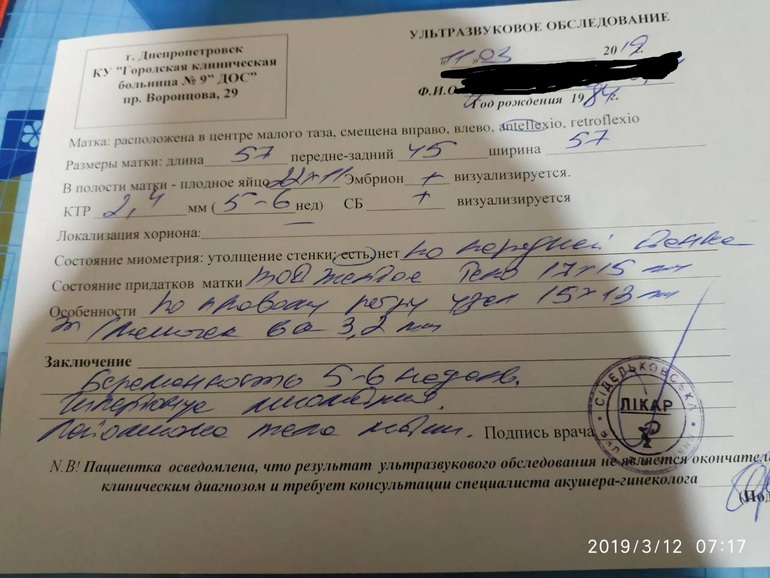 УЛЬТРАЗВУКОВОЕ ОБСЛЕДОВАНИЕ
г. Днепропетровск
КУ "Городская клиническая
больница № 9" ДОС"
пр. Воронцова, 29
"11" 03 2019г.
Ф.И.О
Год рождения 1984г.
Матка: расположена в центре малого таза, смещена вправо, влево, anteflexio, retroflexio
Размеры матки: длина 57 передне-задний 45 ширина 57
В полости матки - плодное яйцо 22×11 Эмбрион + визуализируется.
КТР 2,4 мм (5-6 нед) СБ + визуализируется
Локализация хориона:
Состояние миометрия: утолщение стенки: есть, нет по передней стенке
Состояние придатков матки желтое тело 17×15 мм
Особенности по правому ребру узел 15×13 мм
3,2 мм
Заключение
Беременность 5-6 недель.
Гипертонус миометрия.
тела матки. Подпись врача
СІДЕЛЬКОВСЬКА
ЛІКАР
N.B! Пациентка осведомлена, что результат ультразвукового обследования не является окончател
клиническим диагнозом и требует консультации специалиста акушера-гинеколога
(По
2019/3/12 07:17